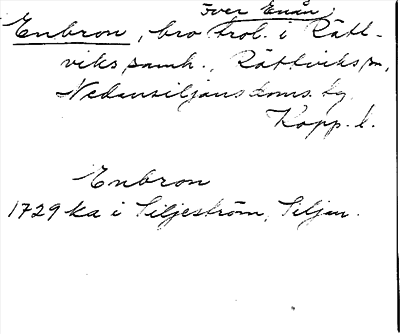 över Enån,
Enbron, bro trol. i Rätt-
viks samh., Rättviks sn,
Nedansiljans doms. tg,
Kopp. l.
Enbron
1729 ka i Siljeström, Siljan.